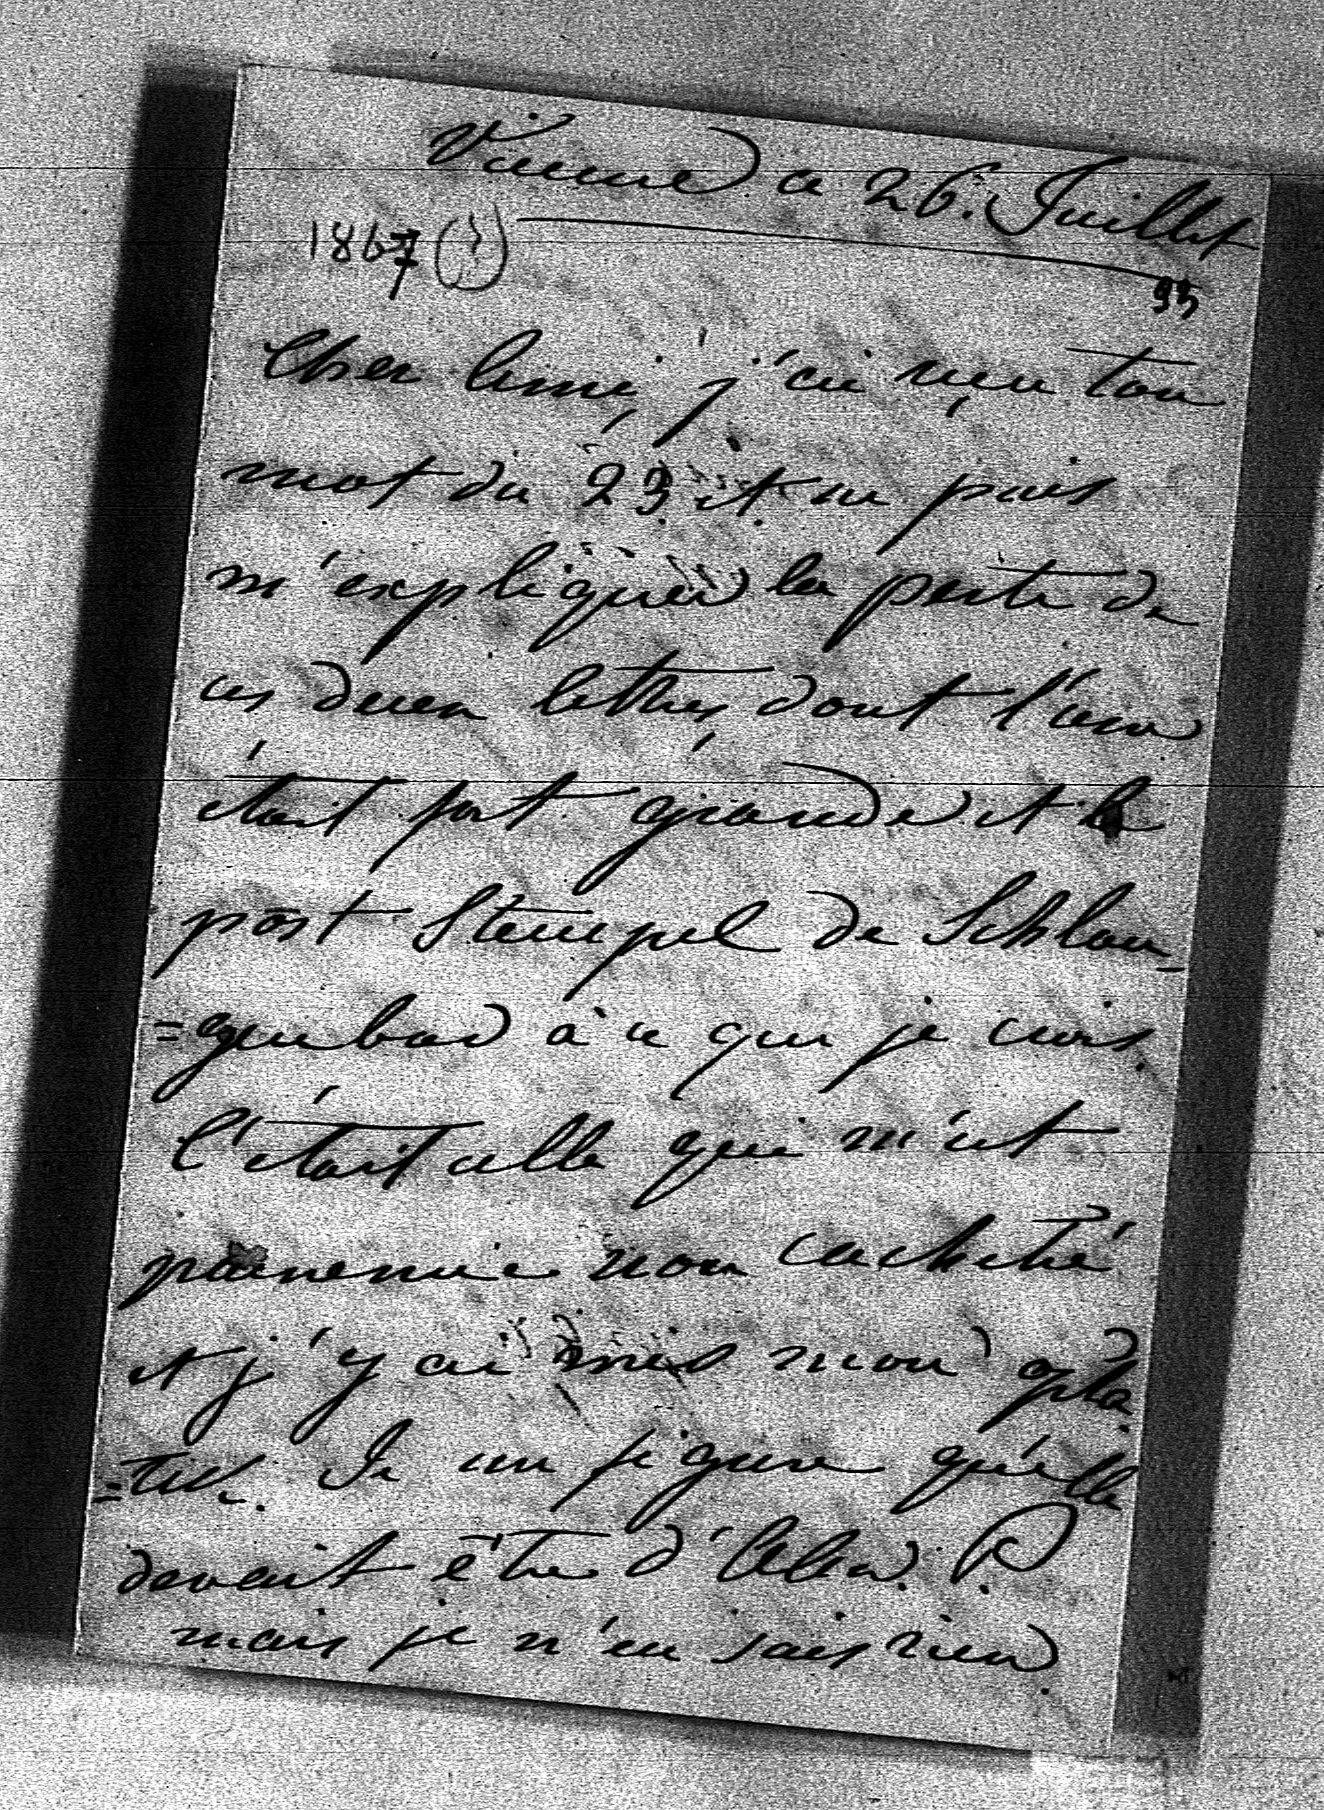 Vienne ce 26. Juillet
1867 (?)
93
Cher ami, j'ai reçu ton
mot du 23 et ne puis
m'expliquer la perte de
ces deux lettres dont l'une
était fort grande et le
post Stempel de Schlan-
=genbad à ce que je crois.
C'était celle qui m'est
parvenue non cacheté
et j'y ai mis mon
Je me figure qu'elle
devait être d' P.
mais je n'en sais rien.